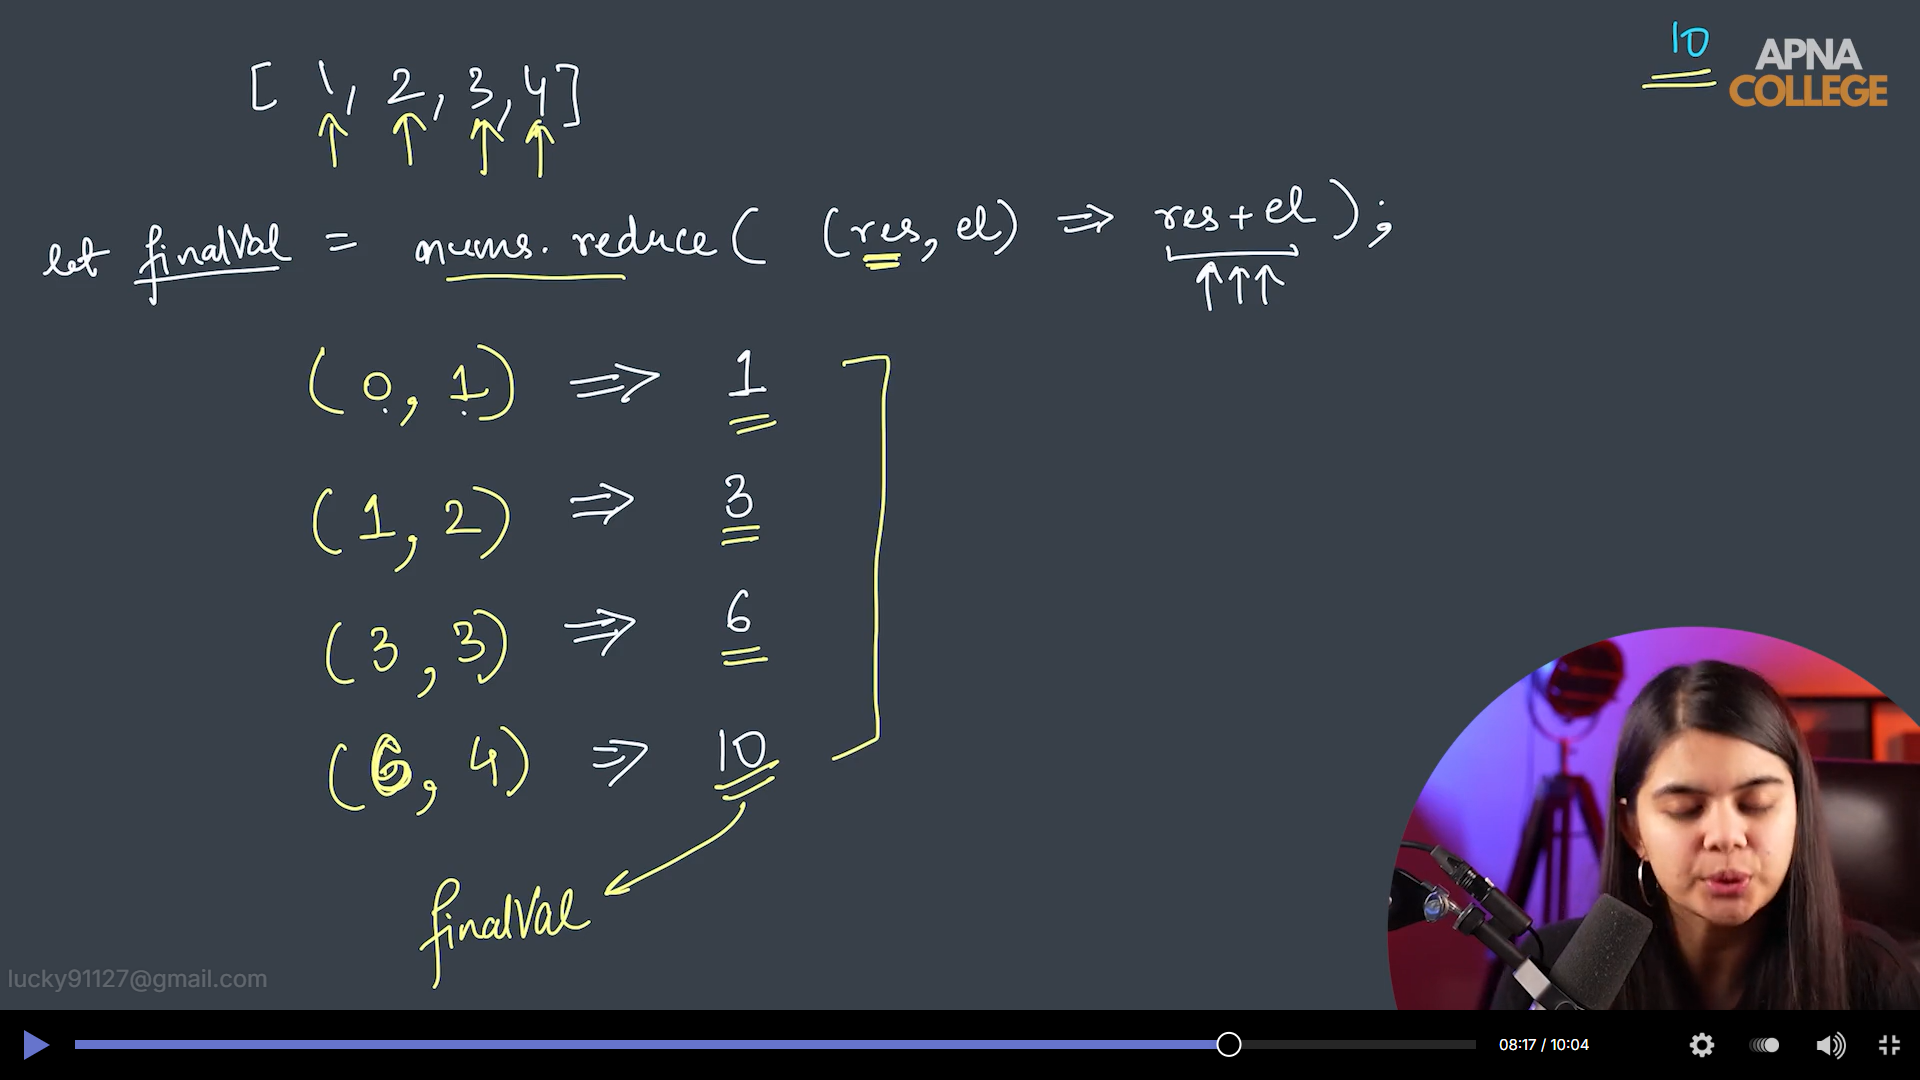 10
APNA
COLLEGE
[ 1, 2, 3, 4 ]
let finalVal = nums. reduce( (res, el) => res + el );
(0, 1) => 1
(1, 2) => 3
(3, 3) => 6
(6, 4) => 10
finalVal
lucky91127@gmail.com
08:17 / 10:04